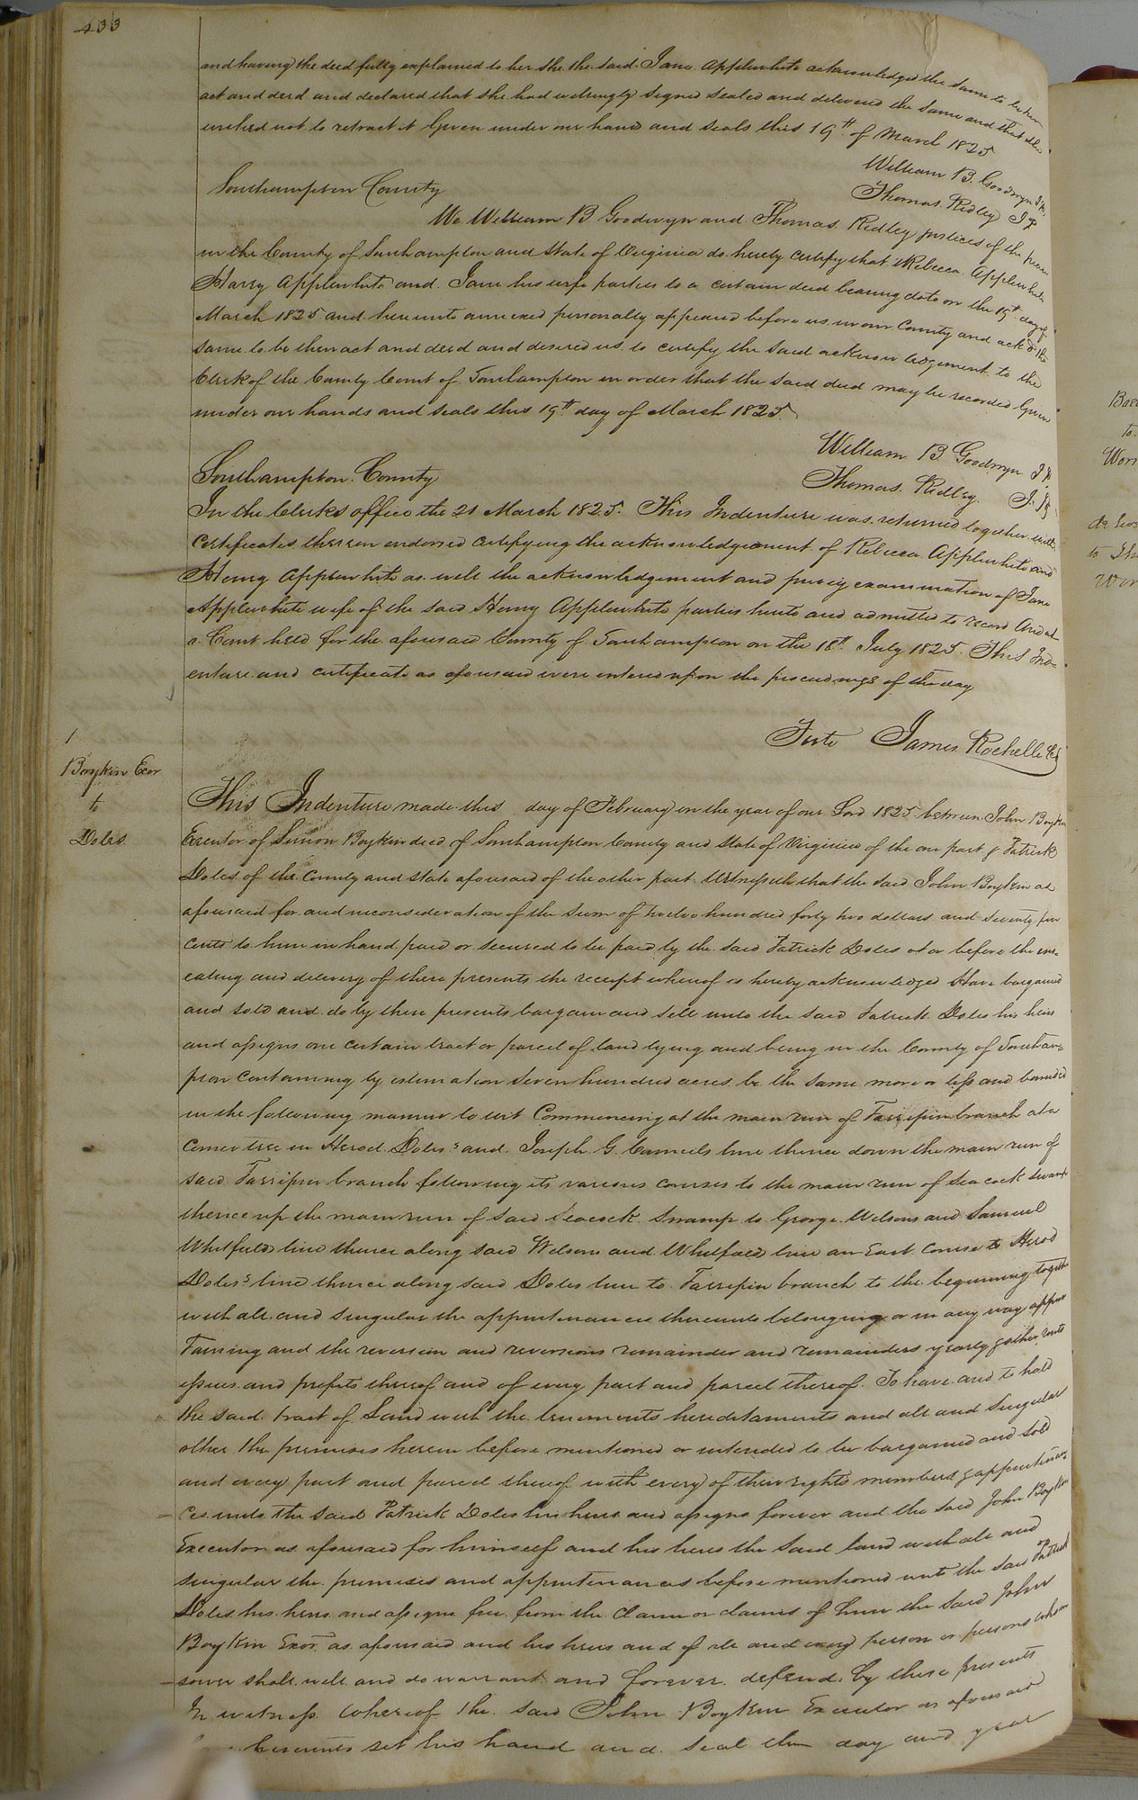 433
and having the deed fully explained to her she the said Jane Applewhite acknowledged the same to be her
act and deed and declared that she had willingly signed sealed and delivered the same and that she
wished not to retract it Given under our hand and seals this 19th of March 1825
William B. Goodwyn J.P.
Thomas Ridley J P
Southampton County
We William B Goodwyn and Thomas Ridley justices of the peace
in the County of Southampton and State of Virginia do hereby certify that Rebecca Applewhite
Harry Applewhite and Jane his wife parties to a certain deed bearing date on the 19th day of
March 1825 and hereunto annexed personally appeared before us in our County and ackd the
same to be their act and deed and desired us to certify the said acknowledgement to the
Clerk of the County Court of Southampton in order that the said deed may be recorded Given
under our hands and seals this 19th day of March 1825
William B Goodwyn J.P.
Thomas Ridley J.P.
Southampton County
In the Clerks office the 21 March 1825. This Indenture was returned together with
Certificates thereon endorsed certifying the acknowledgement of Rebecca Applewhite and
Henry Applewhite as well the acknowledgement and privy examination of Jane
Applewhite wife of the said Henry Applewhite parties hereto and admitted to record And at
a Court held for the aforesaid County of Southampton on the 18th July 1825. This Ind-
enture and certificate as aforesaid were entered upon the proceedings of the day
Teste James Rochelle
1
Boykin Exor
to
Doles
This Indenture made this day of February in the year of our Lord 1825 between John Boykin
Executor of Simon Boykin decd of Southampton County and State of Virginia of the one part & Patrick
Doles of the County and state aforesaid of the other part Witnesseth that the said John Boykin as
aforesaid for and in consideration of the sum of twelve hundred forty two dollars and seventy five
cents to him in hand paid or secured to be paid by the said Patrick Doles at or before the en-
sealing and delivery of these presents the receipt whereof is hereby acknowledged Have bargained
and sold and do by these presents bargain and sell unto the said Patrick Doles his heirs
and assigns one certain tract or parcel of land lying and being in the County of Southam-
pton Containing by estimation Seven hundred acres be the same more or less and bounded
in the following manner to wit Commencing at the main run of Tarripin branch at a
Corner tree in Herod Doles's and Joseph G. line thence down the main run of
said Tarripin branch following its various courses to the main run of Seacock Swamp
thence up the main run of said Seacock Swamp to George Wilsons and Samuel
Whitfields line thence along said Wilsons and Whitfield line an East Course to Herod
Doles's line thence along said Doles line to Tarripin branch to the beginning together
with all and singular the appurtenances thereunto belonging or in any way apper
Taining and the reversion and reversions remainder and remainders yearly & other rents
issues and profits thereof and of every part and parcel thereof. To have and to hold
the said tract of Land with the tenements hereditaments and all and singular
other the premises herein before mentioned or intended to be bargained and sold
and every part and parcel thereof with every of their rights members & appurtenan
ces unto the said Patrick Doles his heirs and assigns forever and the said John Boykin
Executor as aforesaid for himself and his heirs the said land with all and
singular the premises and appurtenances before mentioned unto the said Patrick
Doles his heirs and assigns free from the claim or claims of him the said John
Boykin Exor as aforesaid and his heirs and of all and every person or persons whom
soever shall will and do warrant and forever defend by these presents
In witness whereof the said John Boykin Executor as aforesaid
hereunto set his hand and seal the day and year